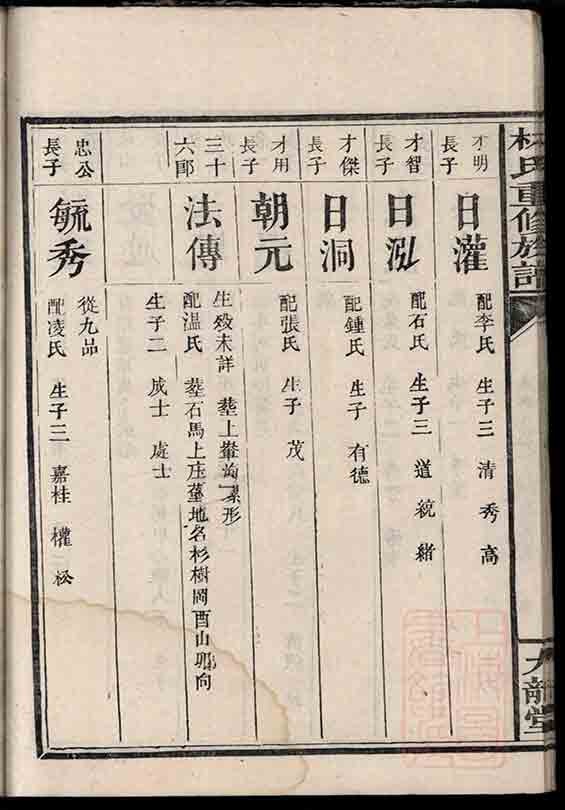 林氏重修族譜
九龍堂
才明
長子
日灌
配李氏 生子三 清 秀 高
才智
長子
日泓
配石氏 生子三 道 統 緒
才傑
長子
日洞
配鍾氏 生子 有德
才用
長子
朝元
配張氏 生子 茂
三十
六郎
法傳
生歿未詳 塟上輋 形
配温氏 塟石馬上庄墓地名杉樹岡酉山卯向
生子二 成士 處士
忠公
長子
毓秀
從九品
配凌氏 生子三 嘉桂 權 松